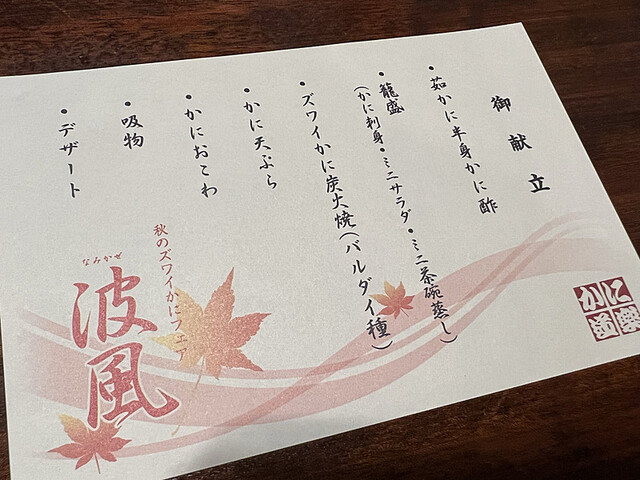 御献立
・茹かに半身かに酢
・籠盛
(かに刺身・ミニサラダ・ミニ茶碗蒸し)
・ズワイかに炭火焼(バルダイ種)
・かに天ぷら
・かにおこわ
・吸物
・デザート
秋のズワイかにフェア
なみかぜ
波風
かに